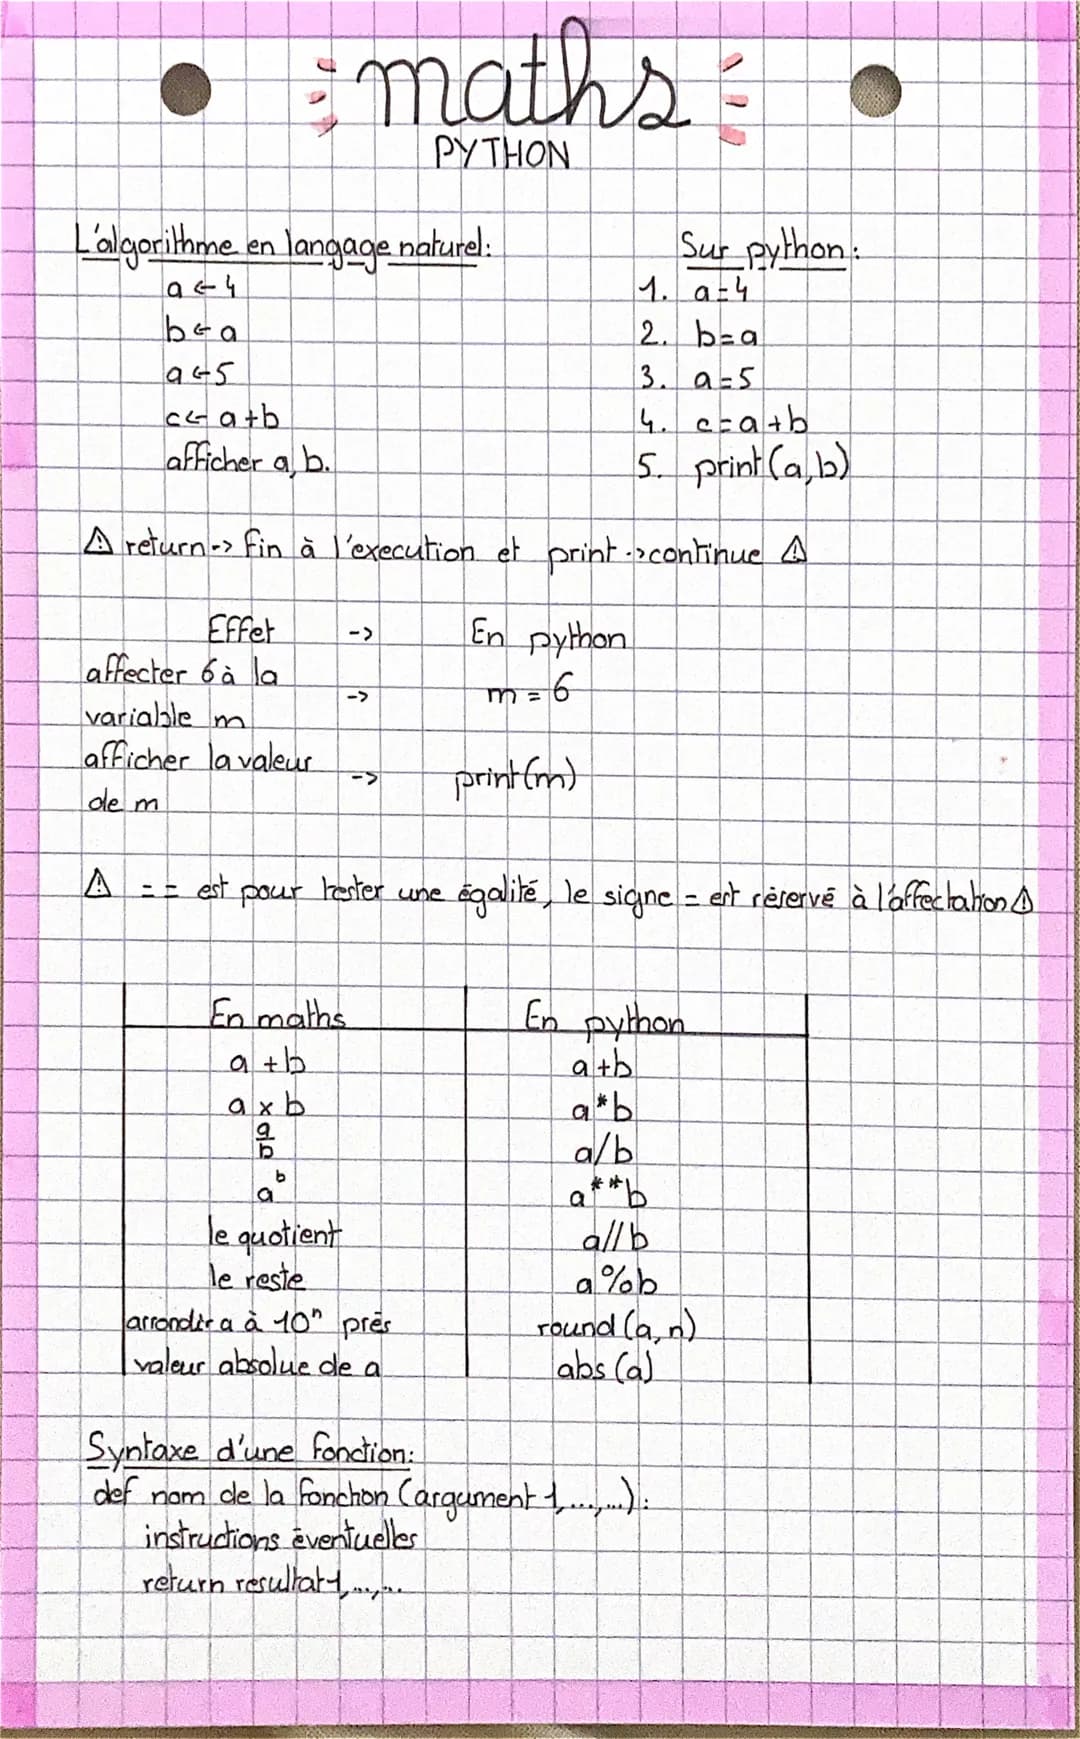 maths
PYTHON
L'algorithme en langage naturel:
a ← 4
b ← a
a ← 5
c ← a+b
afficher a, b.
Sur python:
1. a=4
2. b=a
3. a=5
4. c=a+b
5. print(a,b)
⚠ return -> fin à l'execution et print -> continue ⚠
Effet -> En python
affecter 6 à la
variable m -> m = 6
afficher la valeur
de m -> print(m)
⚠ == est pour tester une égalité, le signe = est réservé à l'affectation ⚠
En maths En python
a + b a+b
a x b a*b
a/b a/b
a^b a**b
le quotient a//b
le reste a%b
arrondir a à 10^n près round (a, n)
valeur absolue de a abs (a)
Syntaxe d'une fonction:
def nom de la fonction (argument 1,...,...):
instructions éventuelles
return resultat 1,...,...